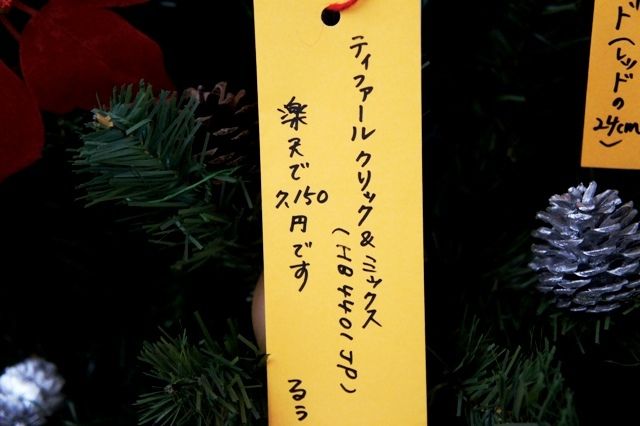 ド(レッドの
24cm)
ティファール クリック&ミックス
(HB4401JP)
楽天で
7,150
円です
るぅ